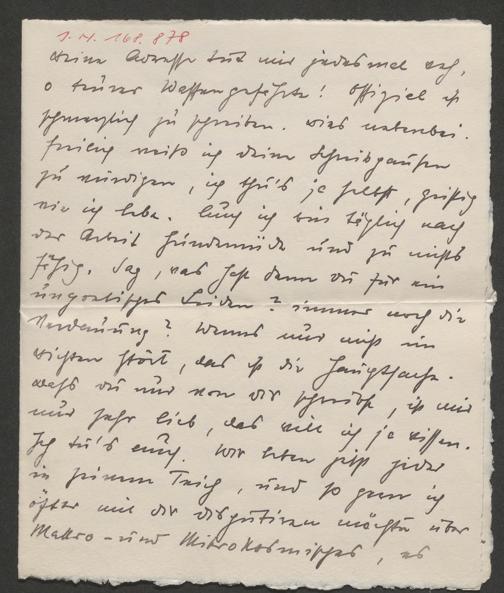 I. N. 168.878
deine Adresse tut mir jedesmal weh,
o teurer Waffengefährte! Offiziell ist
schmerzlich zu schreiben. wies nebenbei.
Freilich weiß ich deine Schreibpausen
zu würdigen, ich thu's ja selbst, geistig
wie ich lebe. Auch ich bin täglich nach
der Arbeit hundemüde und zu nichts
fähig. Sag, was hast denn du für ein
unpoetisches Leiden? immer noch die
Verdauung? Wenns nur nicht im
dichten stört, das ist die Hauptsache.
daß du nur von dir schreibst, ist mir
nur sehr lieb, das will ich ja wissen.
Ich tu's auch. Wir leben jetzt jeder
in seinem Teich, und so gern ich
öfter mit dir disputieren möchte über
Makro- und Mikrokosmisches, es